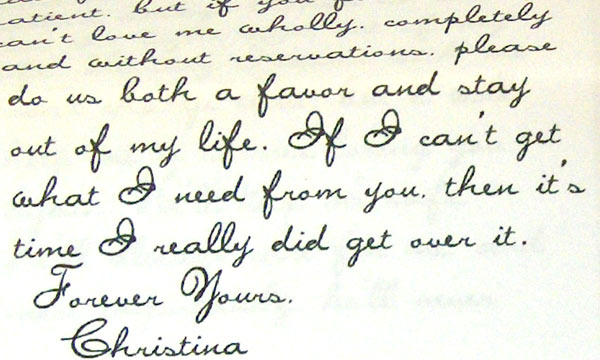 atient. but if you
can't love me wholly. completely
and without reservations. please
do us both a favor and stay
out of my life. If I can't get
what I need from you. then it's
time I really did get over it.
Forever Yours.
Christina